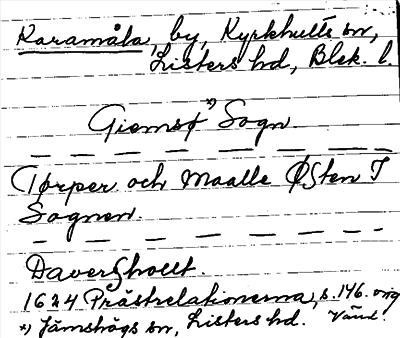 Karamåla, by, Kyrkhults sn,
Listers hd, Blek. l.
Giemsø *) Sogn.
Tørper och Maalle Østen I
Sognen.
Davershollt.
1624 Prästrelationerna, s. 146. orig
*) Jämshögs sn, Listers hd. Vänd.